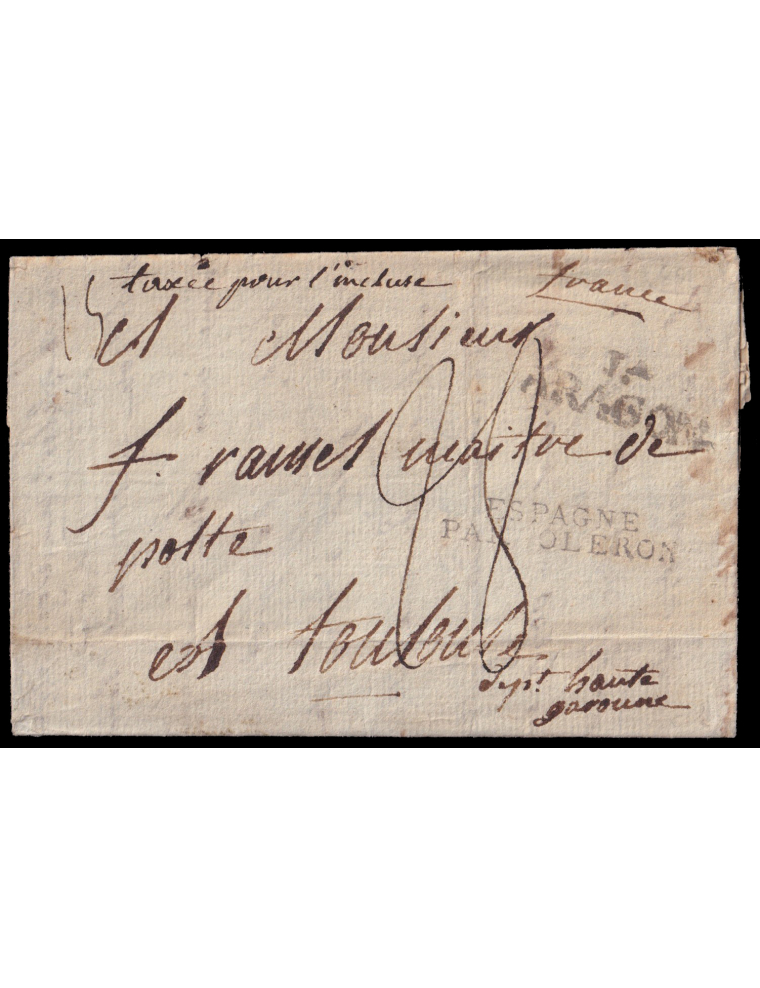 15 taxée pour l'incluse
france
A Monsieur
J.A
ARAGON
f. ransel maitre de
ESPAGNE
PAR OLERON
poste
A toulouse
dept. haute
garonne